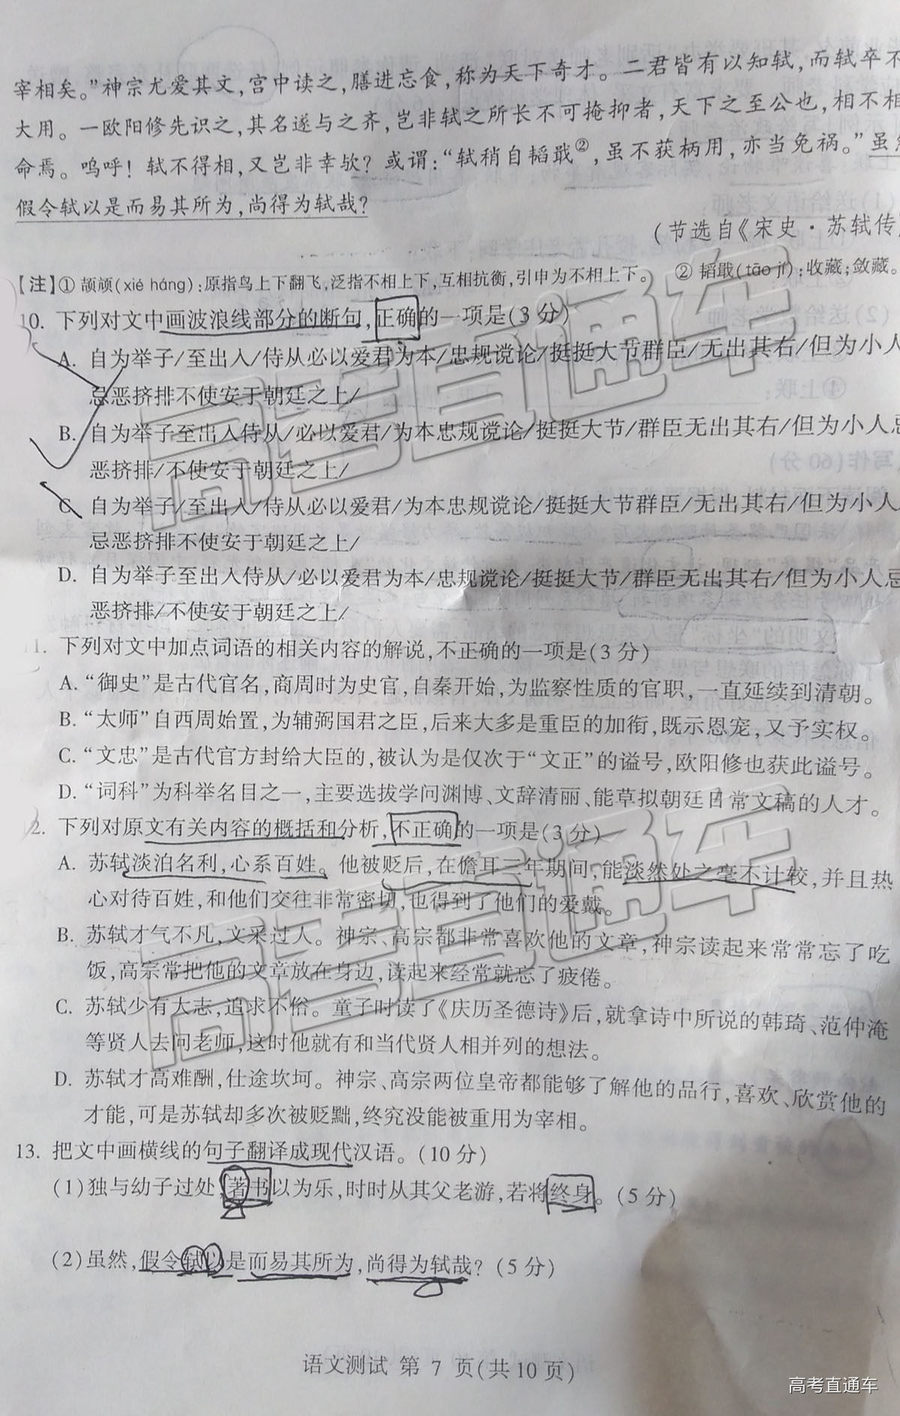 宰相矣。”神宗尤爱其文,宫中读之,膳进忘食,称为天下奇才。二君皆有以知轼,而轼卒不
大用。一欧阳修先识之,其名遂与之齐,岂非轼之所长不可掩抑者,天下之至公也,相不相
命焉。呜呼！轼不得相,又岂非幸欤？或谓:“轼稍自韬戢②,虽不获柄用,亦当免祸。”虽
假令轼以是而易其所为,尚得为轼哉？
(节选自《宋史·苏轼传
【注】① 颉颃(xié háng):原指鸟上下翻飞,泛指不相上下,互相抗衡,引申为不相上下。 ② 韬戢(tāo jí):收藏;敛藏。
10. 下列对文中画波浪线部分的断句,正确的一项是(3 分)
A. 自为举子/至出入/侍从必以爱君为本/忠规谠论/挺挺大节群臣/无出其右/但为小人
忌恶挤排不使安于朝廷之上/
B. 自为举子至出入侍从/必以爱君/为本忠规谠论/挺挺大节/群臣无出其右/但为小人忌
恶挤排/不使安于朝廷之上/
C. 自为举子/至出入/侍从必以爱君/为本忠规谠论/挺挺大节群臣/无出其右/但为小人
忌恶挤排不使安于朝廷之上/
D. 自为举子至出入侍从/必以爱君为本/忠规谠论/挺挺大节/群臣无出其右/但为小人忌
恶挤排/不使安于朝廷之上/
1. 下列对文中加点词语的相关内容的解说,不正确的一项是(3 分)
A. “御史”是古代官名,商周时为史官,自秦开始,为监察性质的官职,一直延续到清朝。
B. “太师”自西周始置,为辅弼国君之臣,后来大多是重臣的加衔,既示恩宠,又予实权。
C. “文忠”是古代官方封给大臣的,被认为是仅次于“文正”的谥号,欧阳修也获此谥号。
D. “词科”为科举名目之一,主要选拔学问渊博、文辞清丽、能草拟朝廷日常文稿的人才。
2. 下列对原文有关内容的概括和分析,不正确的一项是(3 分)
A. 苏轼淡泊名利,心系百姓。他被贬后,在儋耳三年期间,能淡然处之毫不计较,并且热
心对待百姓,和他们交往非常密切,也得到了他们的爱戴。
B. 苏轼才气不凡,文采过人。神宗、高宗都非常喜欢他的文章,神宗读起来常常忘了吃
饭,高宗常把他的文章放在身边,读起来经常就忘了疲倦。
C. 苏轼少有大志,追求不俗。童子时读了《庆历圣德诗》后,就拿诗中所说的韩琦、范仲淹
等贤人去问老师,这时他就有和当代贤人相并列的想法。
D. 苏轼才高难酬,仕途坎坷。神宗、高宗两位皇帝都能够了解他的品行,喜欢、欣赏他的
才能,可是苏轼却多次被贬黜,终究没能被重用为宰相。
13. 把文中画横线的句子翻译成现代汉语。(10 分)
(1)独与幼子过处,著书以为乐,时时从其父老游,若将终身。(5 分)
(2)虽然,假令轼以是而易其所为,尚得为轼哉？(5 分)
语文测试 第 7 页(共10页)
高考直通车
高考直通车
高考直通车